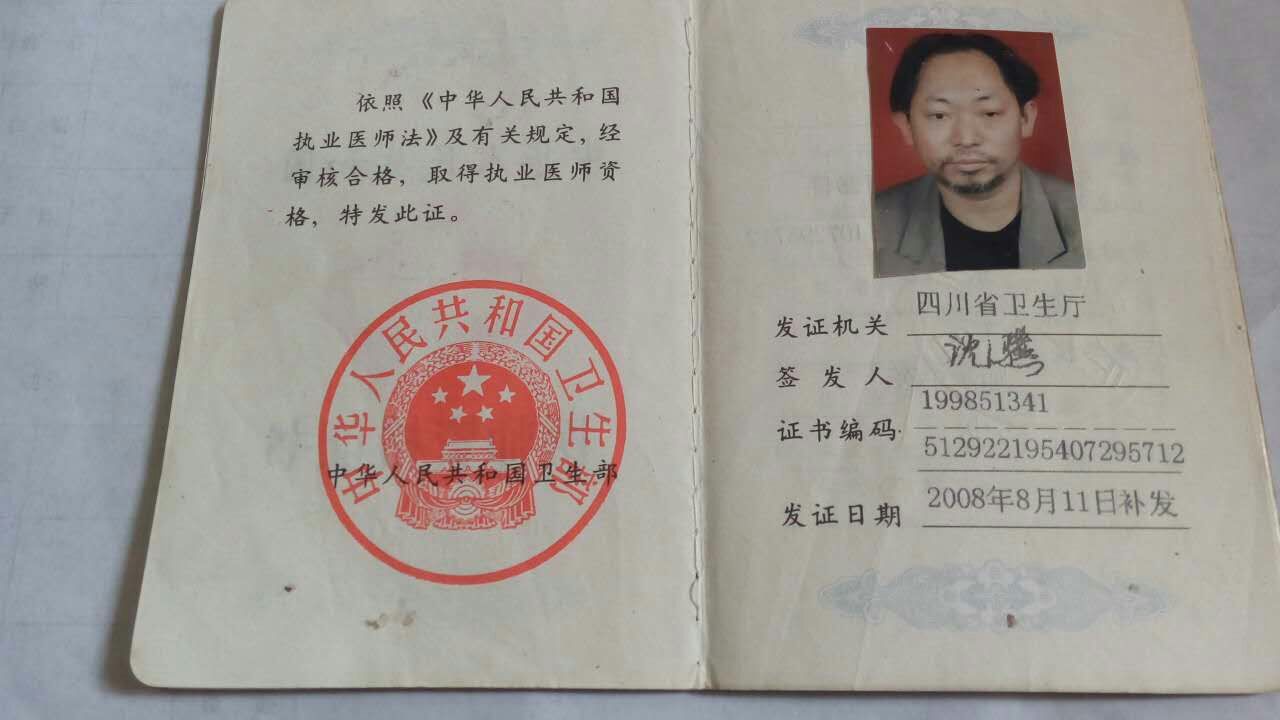 依照《中华人民共和国
执业医师法》及有关规定，经
审核合格，取得执业医师资
格，特发此证。
中华人民共和国卫生部
中华人民共和国卫生部
发证机关 四川省卫生厅
签发人
证书编码 199851341
512922195407295712
发证日期 2008年8月11日补发